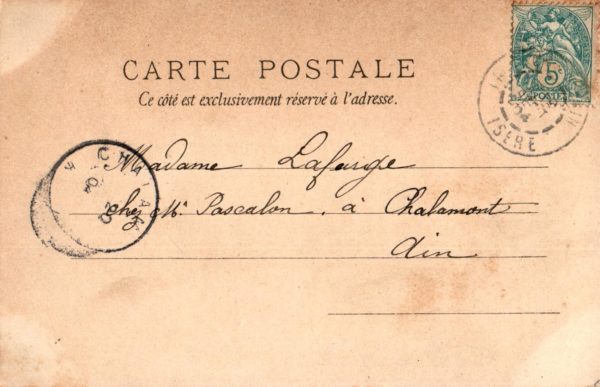 CARTE POSTALE
Ce côté est exclusivement réservé à l'adresse.
5
POSTES
ISÈRE
04
Madame Lafarge
chez Mr. Pascalon, à Chalamont
Ain